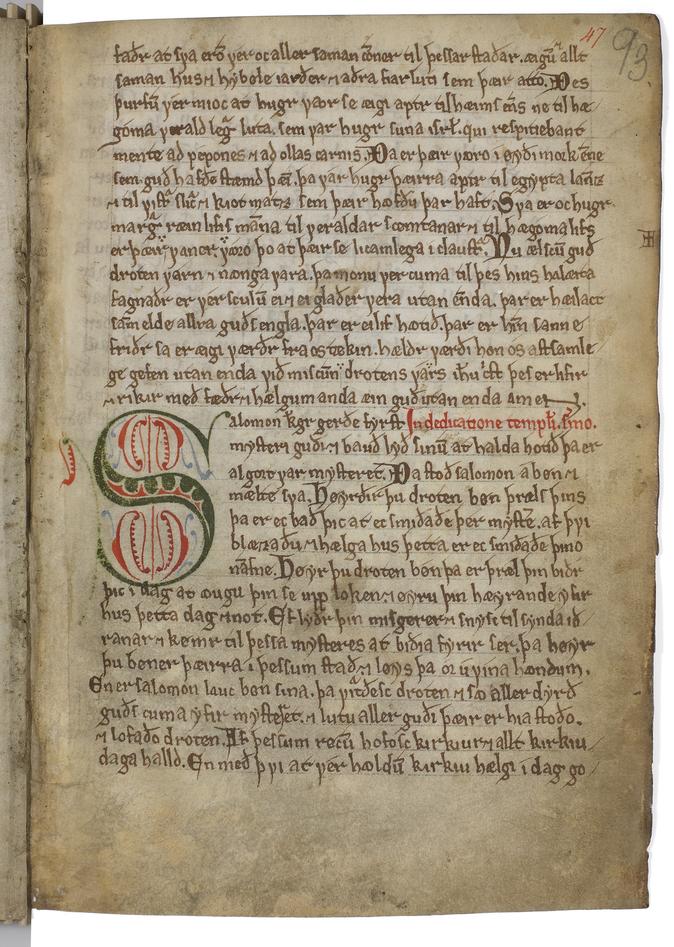 47
93
faðr at sva erð ver oc aller saman cōner til þessar staðar. ægū allt
saman hus ⁊ hybole iarðer ⁊ aðra fiarluti sem þær atto. Þes
þurfū ver mioc at hugr vaor se æigi aptr til hæims ens ne til hæ
goma veralldlegr luta. sem var hugr suna isrł. qui respitiebant
mente ad pepones ⁊ ad ollas carnis. Þa er þæir voro i øyði morkēne
sem guð hafðe stæmd þæī. þa var hugr þæirra aptr til egypta lanz
⁊ til kiot matz sem þæir hofðu þar haft. Sva er oc hugr
margr mānna til veraldar ⁊ til hægoma lifs
er þæir voro þo at þæir se licamlega i claustr. Nu ælscū guð
droten varn ⁊ nonga vara. þa monu ver cuma til þes hins halæita
fagnaðr er ver sculū ei ⁊ ei glaðer vera utan ænda. þar er hæilact
samelde allra guðs engla. þar er eilif hotið. þar er hin sanne
friðr sa er æigi værðr fra os tekin. hældr værði hon os aftsamle
ge gefen utan enda við miscūn drotens várs ihū crist þes er lifir
⁊ rikir með fæðr ⁊ hælgum anda æin guð utan enda amen.
Salomon kgr gerðe fyrst In dedicatione templi. sermo.
mysteri guði ⁊ bauð lyð sinū at halda hotið þa er
algort var mysteret. Þa stoð salomon a bøn ⁊
mælte sva. Høyrðir þu droten bøn þræls þins
þa er ec bað þic at ec smiðaðe þer mystere. at þvi
blæzaðu ⁊ hælga hus þetta er ec smiðaðe þino
namne. Høyr þu droten bøn þa er þræl þin biðr
þic i dag at ougu þin se upp loken ⁊ øyru þin hæyrande yfir
hus þetta dag ⁊ not. Ef lyðr þin misgerer ⁊ snysc til synda ið
ranar ⁊ kømr til þessa mysteres at biðia fyrir ser. þa høyr
þu bøner þæirra i þessum stað ⁊ løys þa or uvina hændum.
En er salomon lauc bøn sina. þa virðesc droten ⁊ so aller dyrð
guðs cuma yfir mysteret. ⁊ lutu aller guði þæir er hia stoðo.
⁊ lofaðo droten. Af þessum røcū hofosc kirkiur ⁊ allt kirkiu
daga halld. En með þvi at vér holdū kirkiu hælgi i dag go